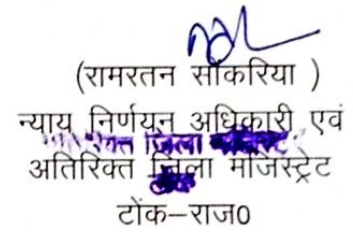 (रामरतन सौंकरिया )
न्याय निर्णयन अधिकारी एवं
अतिरिक्त जिला मजिस्ट्रेट
टोंक-राज0